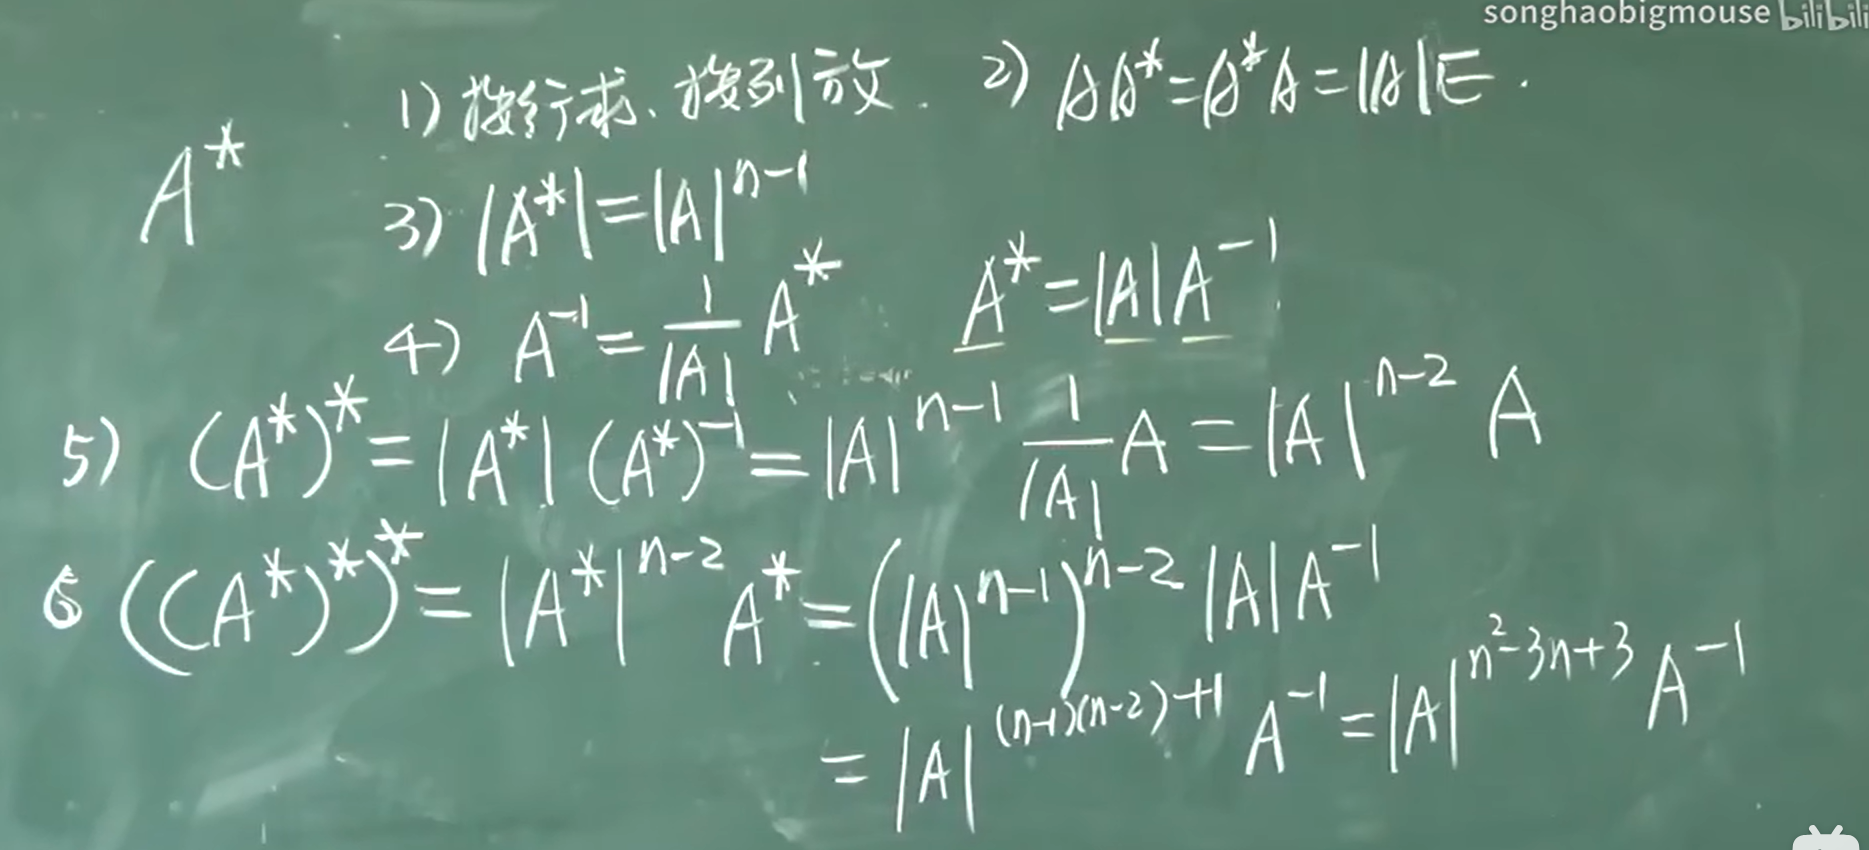 songhaobigmouse bilibili
1) 按行求、按列放. 2) AA* = A*A = |A|E.
A*
3) |A*| = |A|^{n-1}
4) A^{-1} = \frac{1}{|A|} A* A* = |A|A^{-1}
5) (A*)* = |A*| (A*)^{-1} = |A|^{n-1} \frac{1}{|A|} A = |A|^{n-2} A
6 ((A*)*)* = |A*|^{n-2} A* = (|A|^{n-1})^{n-2} |A|A^{-1}
= |A|^{(n-1)(n-2)+1} A^{-1} = |A|^{n^2-3n+3} A^{-1}